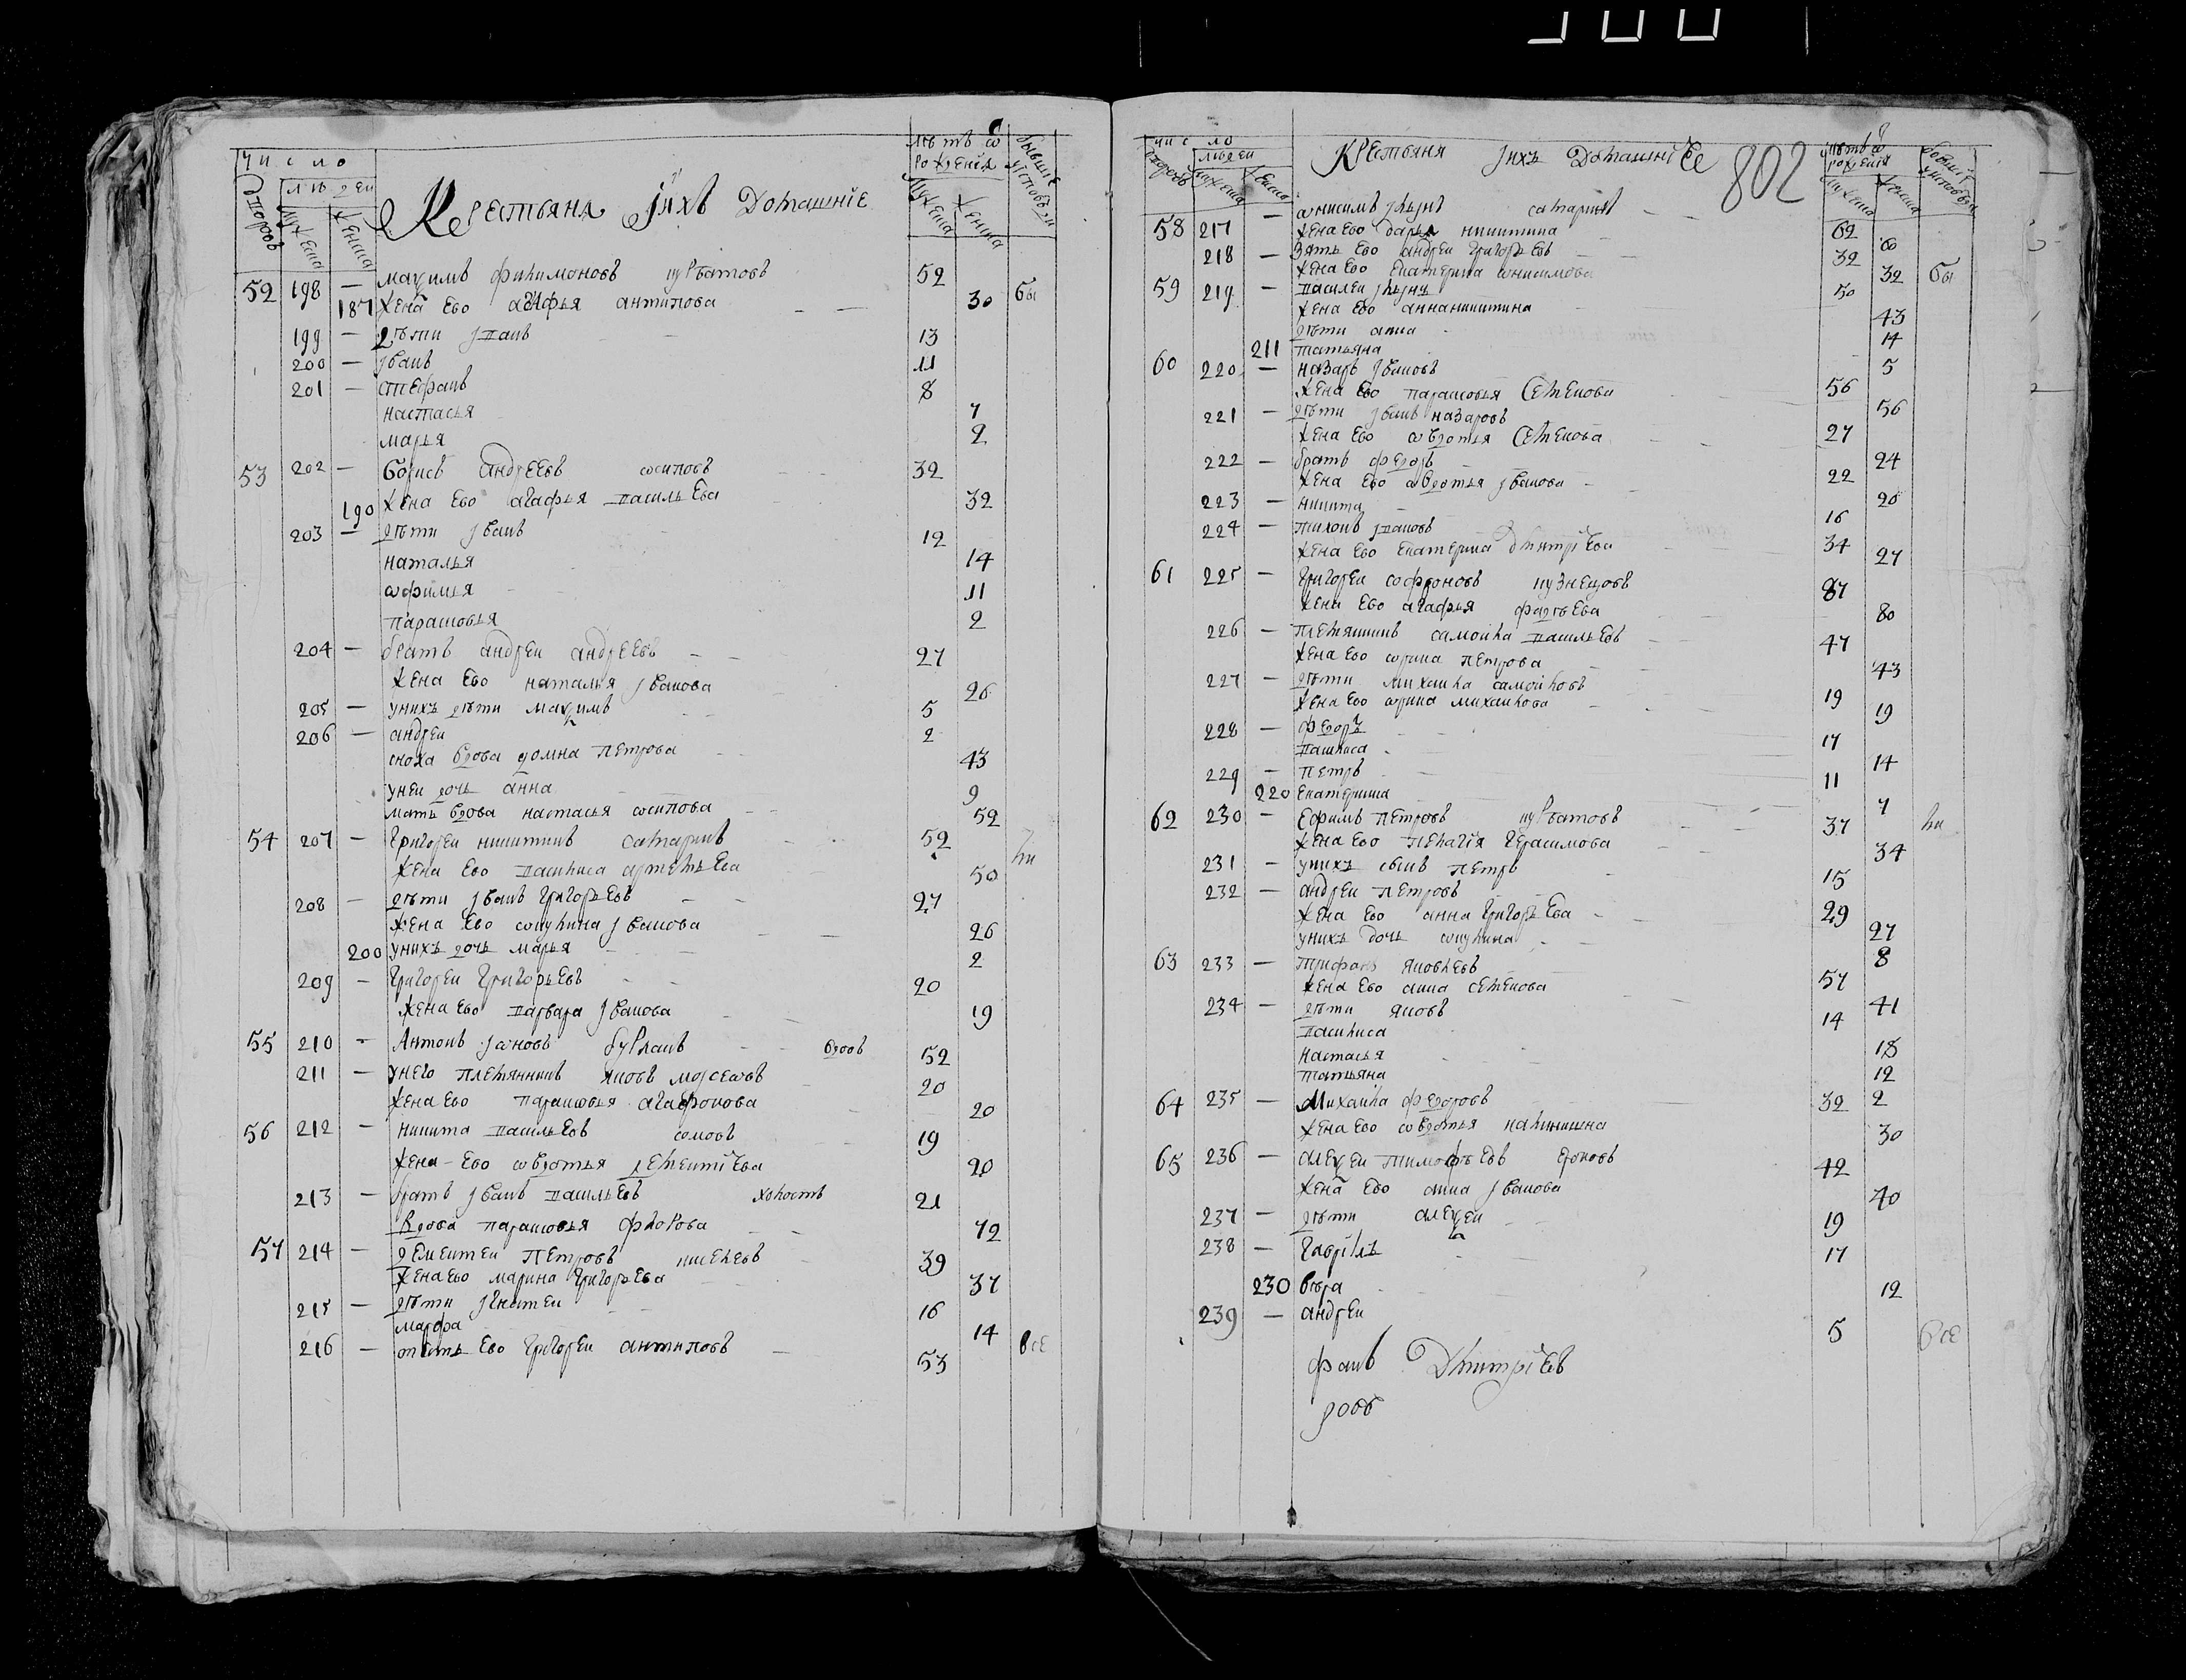 число
дворовъ
людей
мужеска
женска
Крестьяня Ихъ Домашніе
лѣтъ ѿ рожденія
мужеска
женска
бывшие у исповѣди
52 198 — маѯимъ филимоновъ курбатовъ 52
187 жена ево агафья антипова 30 бы
199 — дѣти іванъ 13
200 — іванъ 11
201 — стефанъ 8
настасья 7
марья 2
53 202 — борисъ андреевъ осиповъ 32
190 жена ево агафья васильева 32
203 — дѣти іванъ 12
наталья 14
офимья 11
парасковья 2
204 — братъ андреи андреевъ 27
жена ево наталья іванова 26
205 — унихъ дѣти маѯимъ 5
206 — андреи 2
сноха вдова домна петрова 43
унеи дочь анна 9
мать вдова настасья осипова 52
54 207 — григореи никитинъ сатаринъ 52
жена ево василиса артемьева 50 ли
208 — дѣти іванъ григорьевъ 27
жена ево акулина іванова 26
200 унихъ дочь марья 2
209 — григореи григорьевъ 20
жена ево варвара іванова 19
55 210 — Антонъ іоновъ бурлаивъ вдовъ 52
211 — унего племянникъ яковъ моѵсеовъ 20
жена ево парасковья агафонова 20
56 212 — никита васильевъ сомовъ 19
жена ево овдотья дементіева 20
213 — братъ іванъ васильевъ холостъ 21
вдова парасковья флорова 72
57 214 — дементеи петровъ киселевъ 39
жена ево марина григорьева 37
215 — дѣти ігнатеи 16
марфа 14
216 — тесть ево григореи антиповъ 53 все
число
дворовъ
людеи
мужеска
женска
Крестьяня Ихъ Домашніе
802
58 217 — онисимъ ильинъ сатаринъ 62
жена ево дарья никитина 60
218 — зять ево андреи григорьевъ 32
жена ево екатерина онисимова 32 бы
59 219 — василеи ильинъ 50
жена ево анна никитина 43
дѣти анна 14
211 татьяна 5
60 220 — назаръ івановъ 56
жена ево парасковья семенова 56
221 — дѣти іванъ назаровъ 27
жена ево овдотья семенова 24
222 — братъ федоръ 22
жена ево овдотья іванова 20
223 — никита 16
224 — тихонъ івановъ 34
жена ево екатерина дмитріева 27
61 225 — григореи софроновъ кузнецовъ 87
жена ево агафья фадѣева 80
226 — племянникъ самоила васильевъ 47
жена ево орина петрова 43
227 — дѣти михаила самоиловъ 19
жена ево орина михаилова 19
228 — федоръ 17
василиса 14
229 — петръ 11
220 екатерина 7
62 230 — ефимъ петровъ курбатовъ 37 ли
жена ево пелагія герасимова 34
231 — унихъ сынъ петръ 15
232 — андреи петровъ 29
жена ево анна григорьева 27
унихъ дочь окулина 8
63 233 — трифанъ яковлевъ 57
жена ево анна семенова 41
234 — дѣти яковъ 14
василиса 18
настасья 12
татьяна 2
64 235 — михаила федоровъ 32
жена ево овдотья калинина 30
65 236 — алеѯеи тимофѣевъ 42
жена ево анна іванова 40
237 — дѣти алеѯеи 19
238 — гаврила 17
230 вѣра 12
239 — андреи 5 все
фанъ Дмитріевъ
ровъ